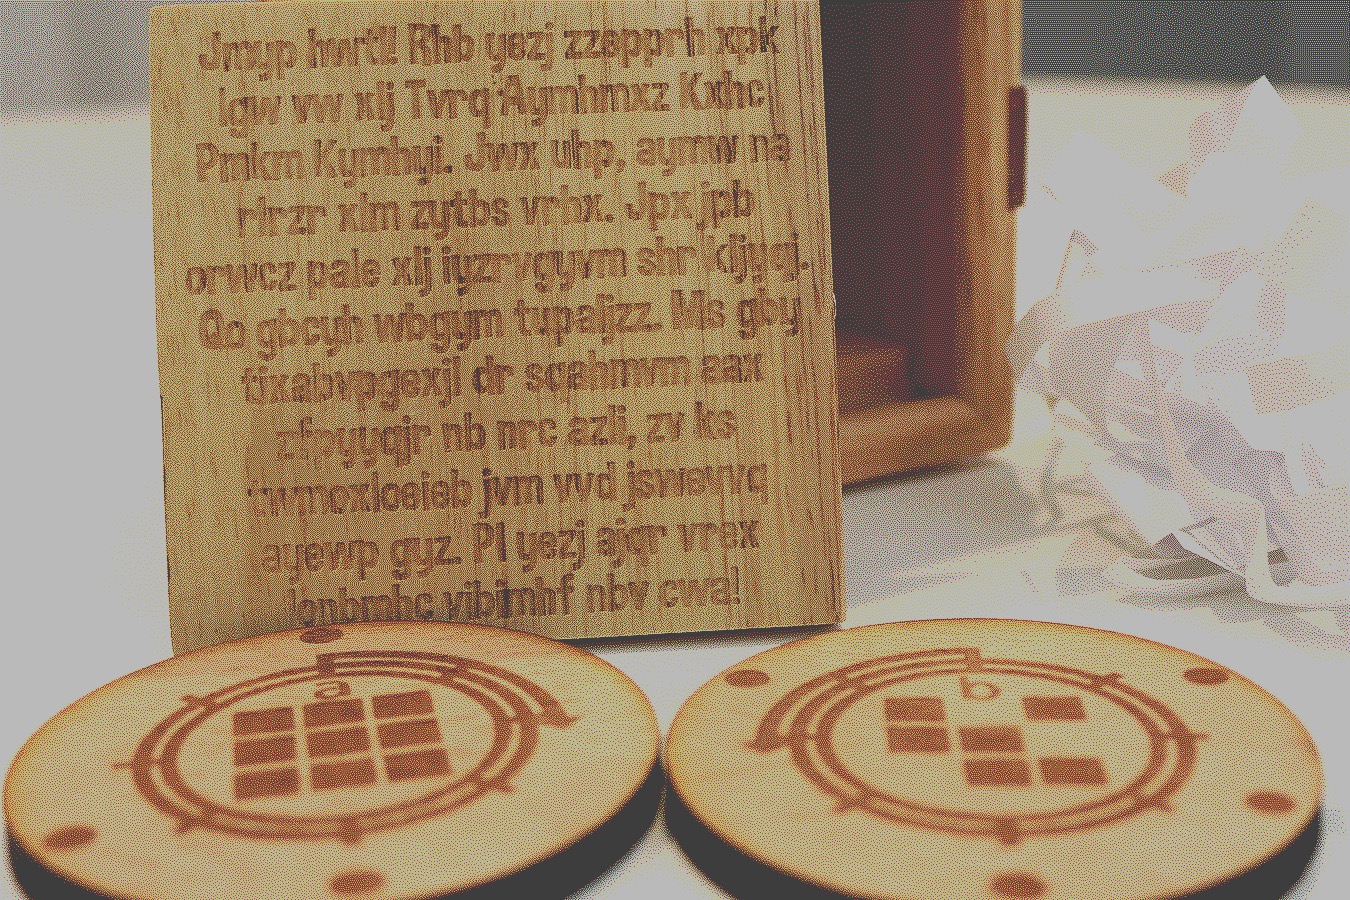 Jmyp hwrt!! Rhb yezj zzepprh xpk
lgw vw xlj Tvrq Aymhmxz Kxhc
Pmkm Kymhyi. Jwx uhp, aymw na
rlrzr xlm zytbs vrbx. Jpx jpb
orwcz pale xlj iyzrvgyvm shr
Qo gbcyh wbgym tvpaljzz. Ms gby
tixabvpgexjl dr sqahmvm aax
nb nrc azli, zv ks
jvm vvd jsrwevrq
ayewp gyz. Pl yezj ajqr vrex
vibimhf nbv cwa!
a
b